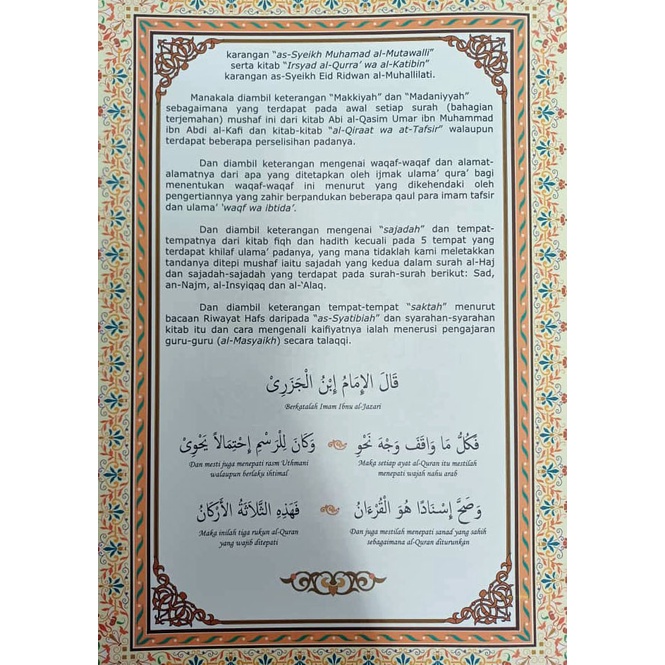 karangan "as-Syeikh Muhamad al-Mutawalli"
serta kitab "Irsyad al-Qurra' wa al-Katibin"
karangan as-Syeikh Eid Ridwan al-Muhallilati.
Manakala diambil keterangan "Makkiyah" dan "Madaniyyah"
sebagaimana yang terdapat pada awal setiap surah (bahagian
terjemahan) mushaf ini dari kitab Abi al-Qasim Umar ibn Muhammad
ibn Abdi al-Kafi dan kitab-kitab "al-Qiraat wa at-Tafsir" walaupun
terdapat beberapa perselisihan padanya.
Dan diambil keterangan mengenai waqaf-waqaf dan alamat-
alamatnya dari apa yang ditetapkan oleh ijmak ulama' qura' bagi
menentukan waqaf-waqaf ini menurut yang dikehendaki oleh
pengertiannya yang zahir berpandukan beberapa qaul para imam tafsir
dan ulama' 'waqf wa ibtida'.
Dan diambil keterangan mengenai "sajadah" dan tempat-
tempatnya dari kitab fiqh dan hadith kecuali pada 5 tempat yang
terdapat khilaf ulama' padanya, yang mana tidaklah kami meletakkan
tandanya ditepi mushaf iaitu sajadah yang kedua dalam surah al-Haj
dan sajadah-sajadah yang terdapat pada surah-surah berikut: Sad,
an-Najm, al-Insyiqaq dan al-'Alaq.
Dan diambil keterangan tempat-tempat "saktah" menurut
bacaan Riwayat Hafs daripada "as-Syatibiah" dan syarahan-syarahan
kitab itu dan cara mengenali kaifiyatnya ialah menerusi pengajaran
guru-guru (al-Masyaikh) secara talaqqi.
قَالَ الإِمَامُ إِبْنُ الْجَزَرِىْ
Berkatalah Imam Ibnu al-Jazari
فَكُلُّ مَا وَافَقَ وَجْهَ نَحْوِ وَكَانَ لِلرَّسْمِ إِحْتِمَالاً يَحْوِىْ
Maka setiap ayat al-Quran itu mestilah
menepati wajah nahu arab
Dan mesti juga menepati rasm Uthmani
walaupun berlaku ihtimal
وَصَحَّ إِسْنَادًا هُوَ الْقُرْءَانُ فَهَذِهِ الثَّلاَثَةُ الأَرْكَانُ
Dan juga mestilah menepati sanad yang sahih
sebagaimana al-Quran diturunkan
Maka inilah tiga rukun al-Quran
yang wajib ditepati